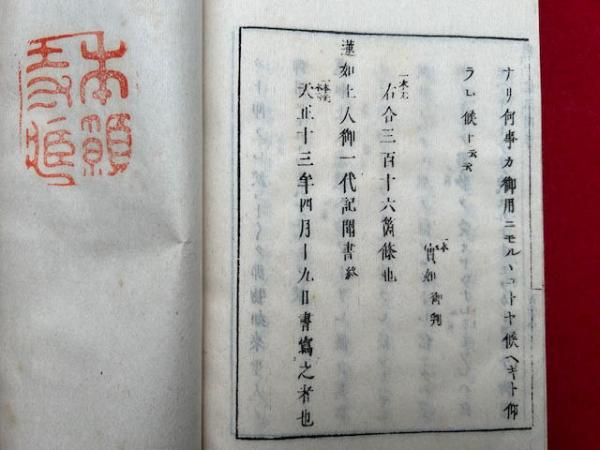 ナリ何事カ御用ニモルヽコトナ候ヘキト仰
ラレ候ト云云
一本 實如御判
一本无 右合三百十六箇條也
蓮如上人御一代記聞書終
天正十三年四月十九日書寫之者也
本願
寺